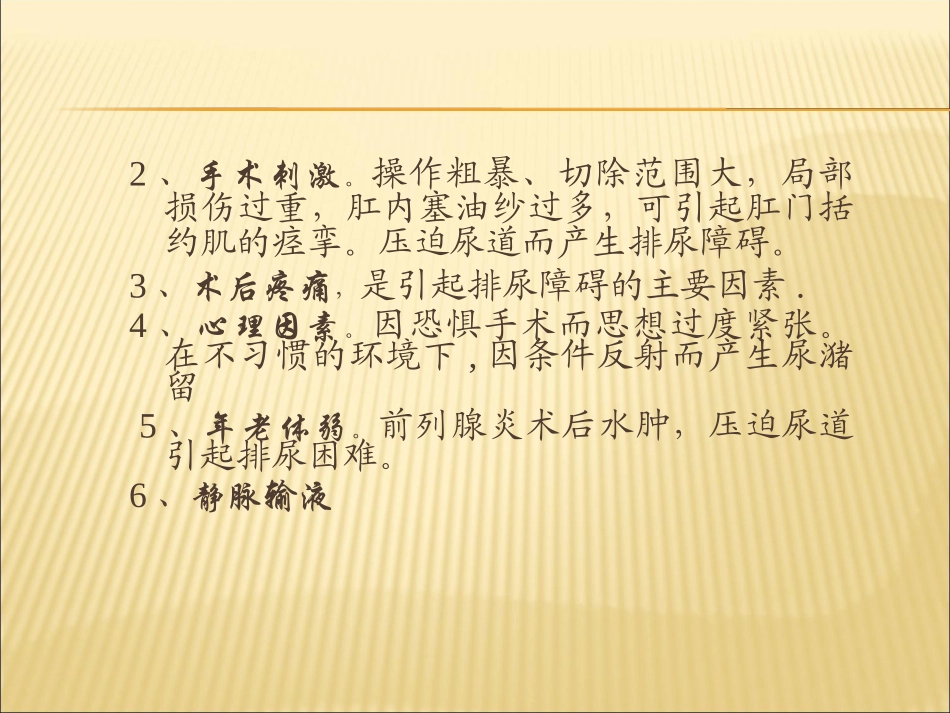 2、手术刺激。操作粗暴、切除范围大，局部
损伤过重，肛内塞油纱过多，可引起肛门括
约肌的痉挛。压迫尿道而产生排尿障碍。
3、术后疼痛，是引起排尿障碍的主要因素.
4、心理因素。因恐惧手术而思想过度紧张。
在不习惯的环境下,因条件反射而产生尿潴
留
5、年老体弱。前列腺炎术后水肿，压迫尿道
引起排尿困难。
6、静脉输液